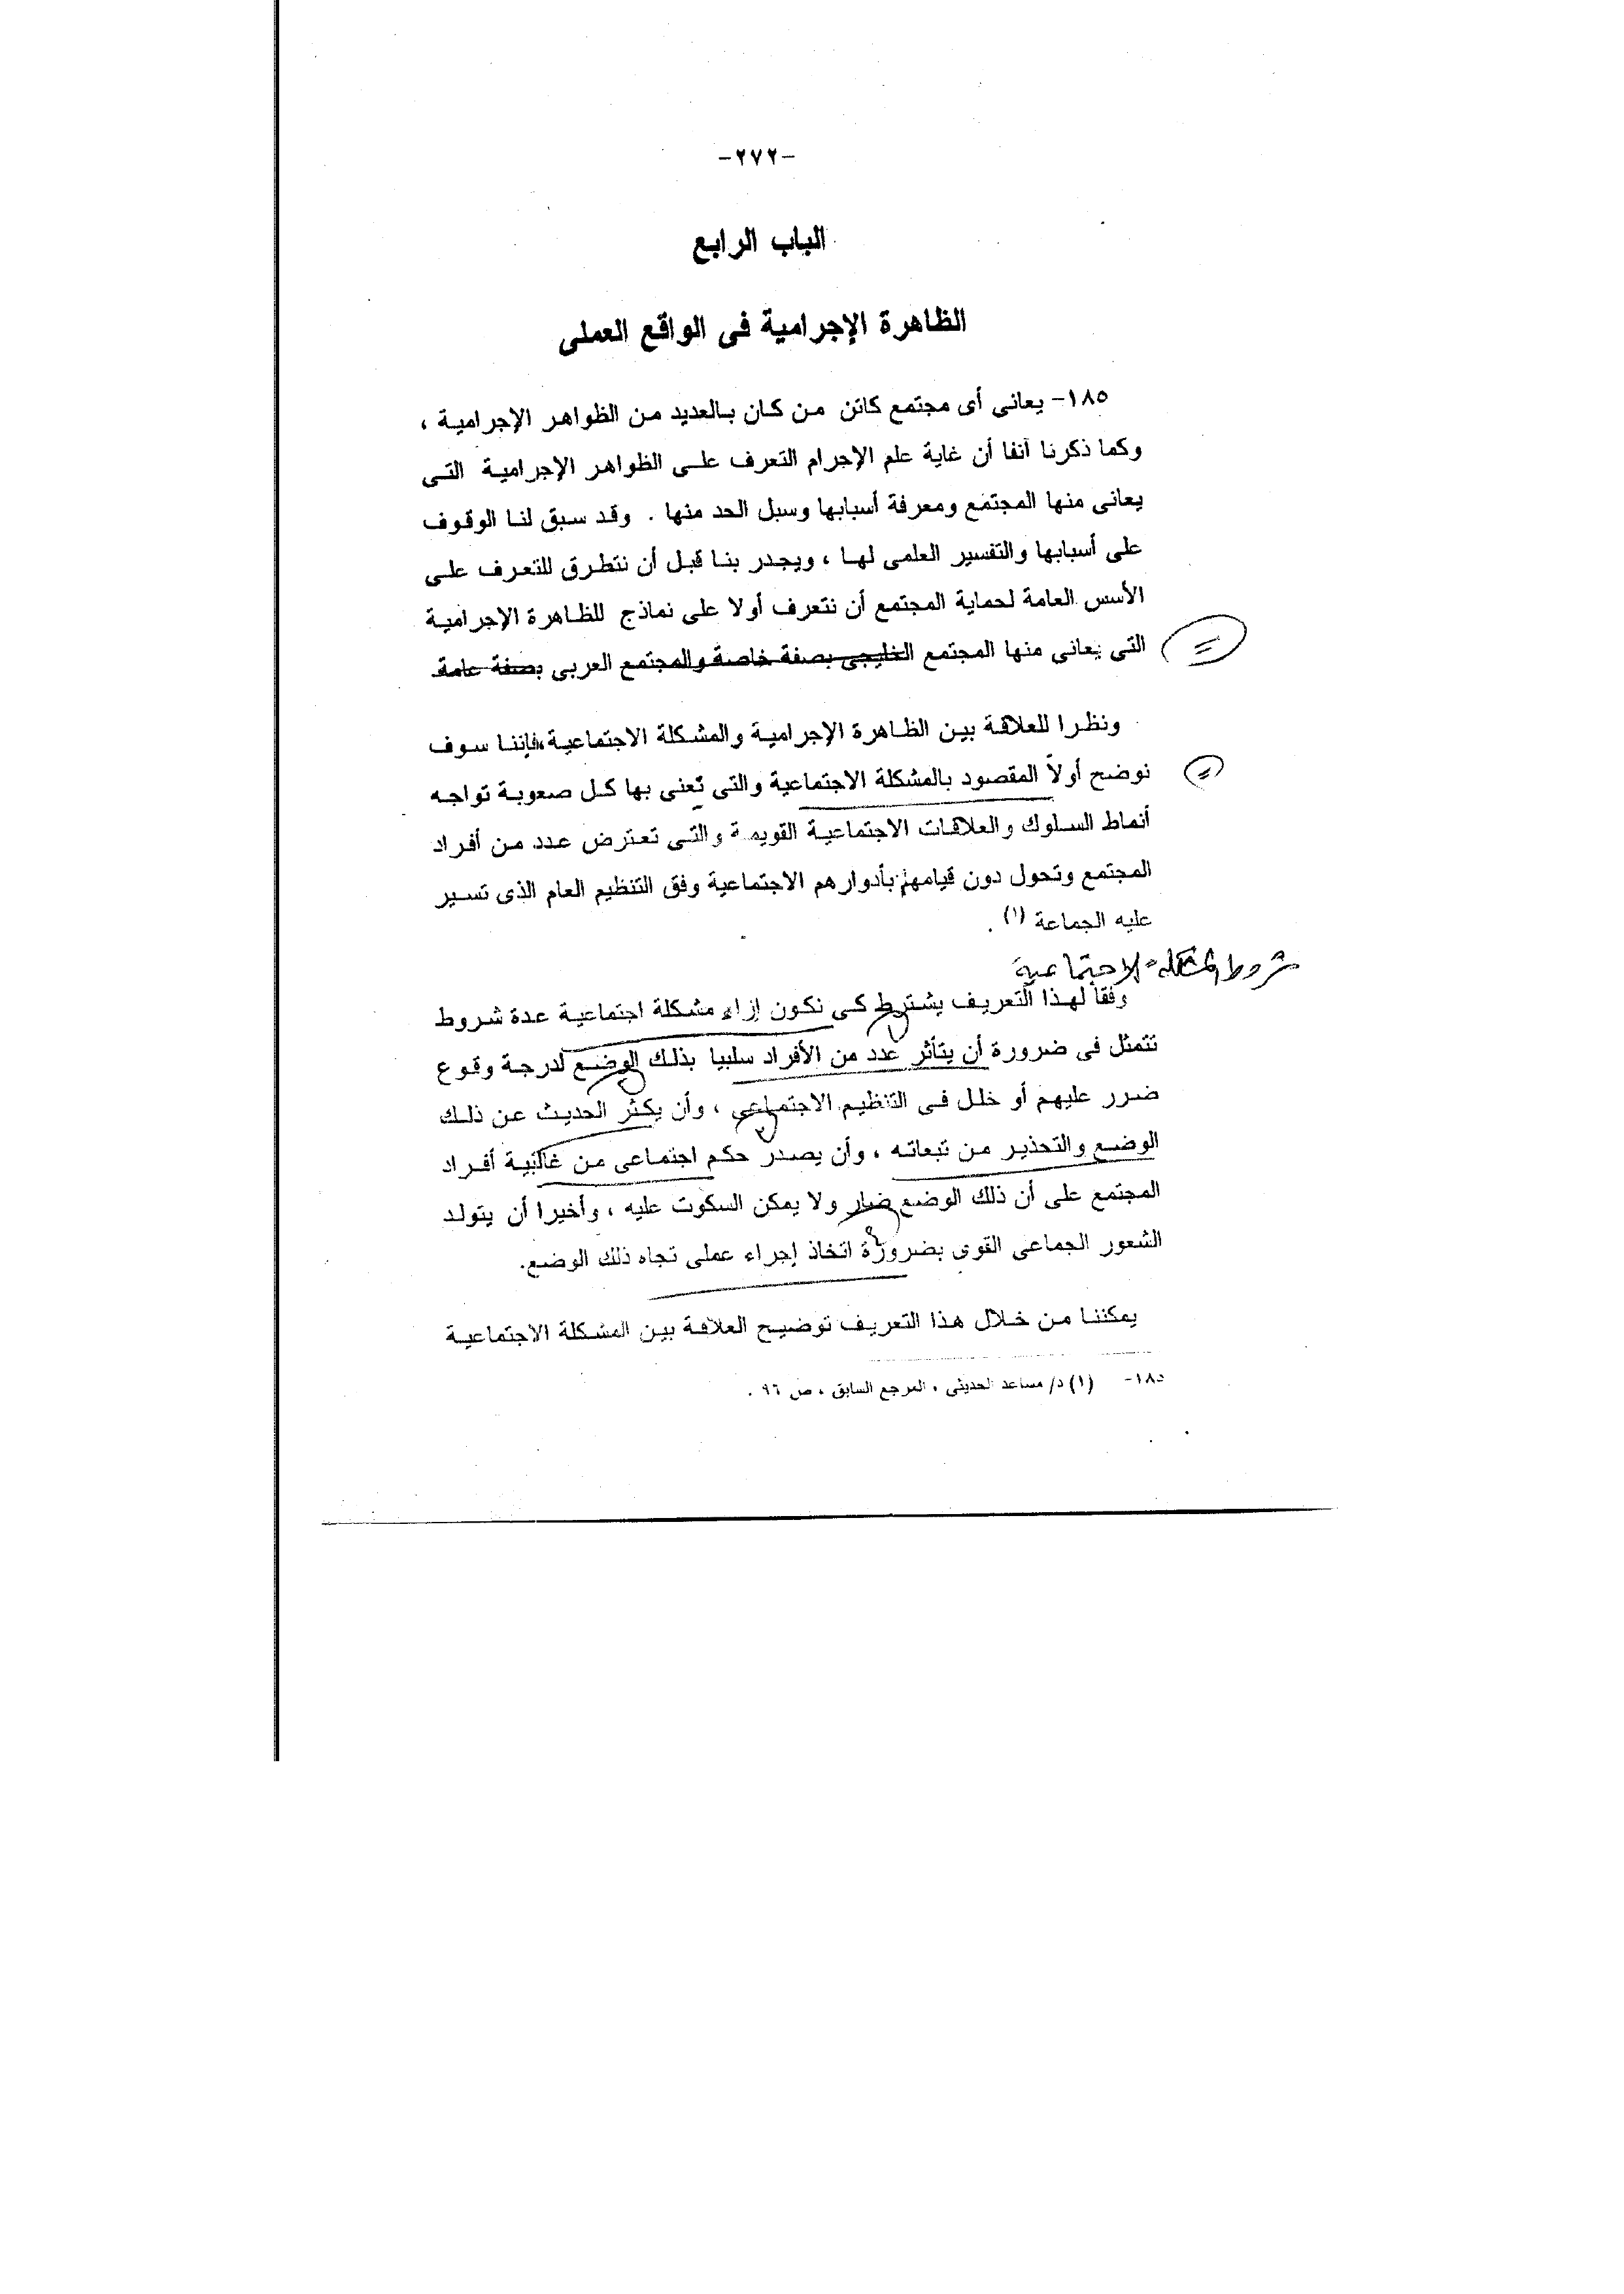 -٢٧٢-
الباب الرابع
الظاهرة الإجرامية فى الواقع العملى
١٨٥- يعانى أى مجتمع كائن من كان بالعديد من الظواهر الإجرامية ،
وكما ذكرنا آنفا أن غاية علم الإجرام التعرف على الظواهر الإجرامية التى
يعانى منها المجتمع ومعرفة أسبابها وسبل الحد منها . وقد سبق لنا الوقوف
على أسبابها والتفسير العلمى لها ، ويجدر بنا قبل أن نتطرق للتعرف على
الأسس العامة لحماية المجتمع أن نتعرف أولا على نماذج للظاهرة الإجرامية
التى يعانى منها المجتمع الخليجى بصفة خاصة والمجتمع العربى بصفة عامة.
ونظرا للعلاقة بين الظاهرة الإجرامية والمشكلة الاجتماعية،فإننا سوف
نوضح أولاً المقصود بالمشكلة الاجتماعية والتى تعنى بها كل صعوبة تواجه
أنماط السلوك والعلاقات الاجتماعية القويمة والتى تعترض عدد من أفراد
المجتمع وتحول دون قيامهم بأدوارهم الاجتماعية وفق التنظيم العام الذى تسير
عليه الجماعة (١) .
شروط المشكلة الاجتماعية
وفقا لهذا التعريف يشترط كى نكون إزاء مشكلة اجتماعية عدة شروط
تتمثل فى ضرورة أن يتأثر عدد من الأفراد سلبيا بذلك الوضع لدرجة وقوع
ضرر عليهم أو خلل فى التنظيم الاجتماعى ، وأن يكثر الحديث عن ذلك
الوضع والتحذير من تبعاته ، وأن يصدر حكم اجتماعى من غالبية أفراد
المجتمع على أن ذلك الوضع ضار ولا يمكن السكوت عليه ، وأخيرا أن يتولد
الشعور الجماعى القوى بضرورة اتخاذ إجراء عملى تجاه ذلك الوضع.
يمكننا من خلال هذا التعريف توضيح العلاقة بين المشكلة الاجتماعية
١٨٥- (١) د/ مساعد الحديثى ، المرجع السابق ، ص ٩٦ .